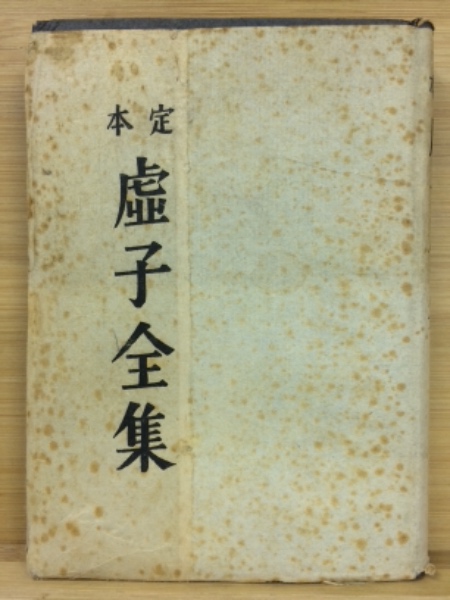 定本
虚子全集